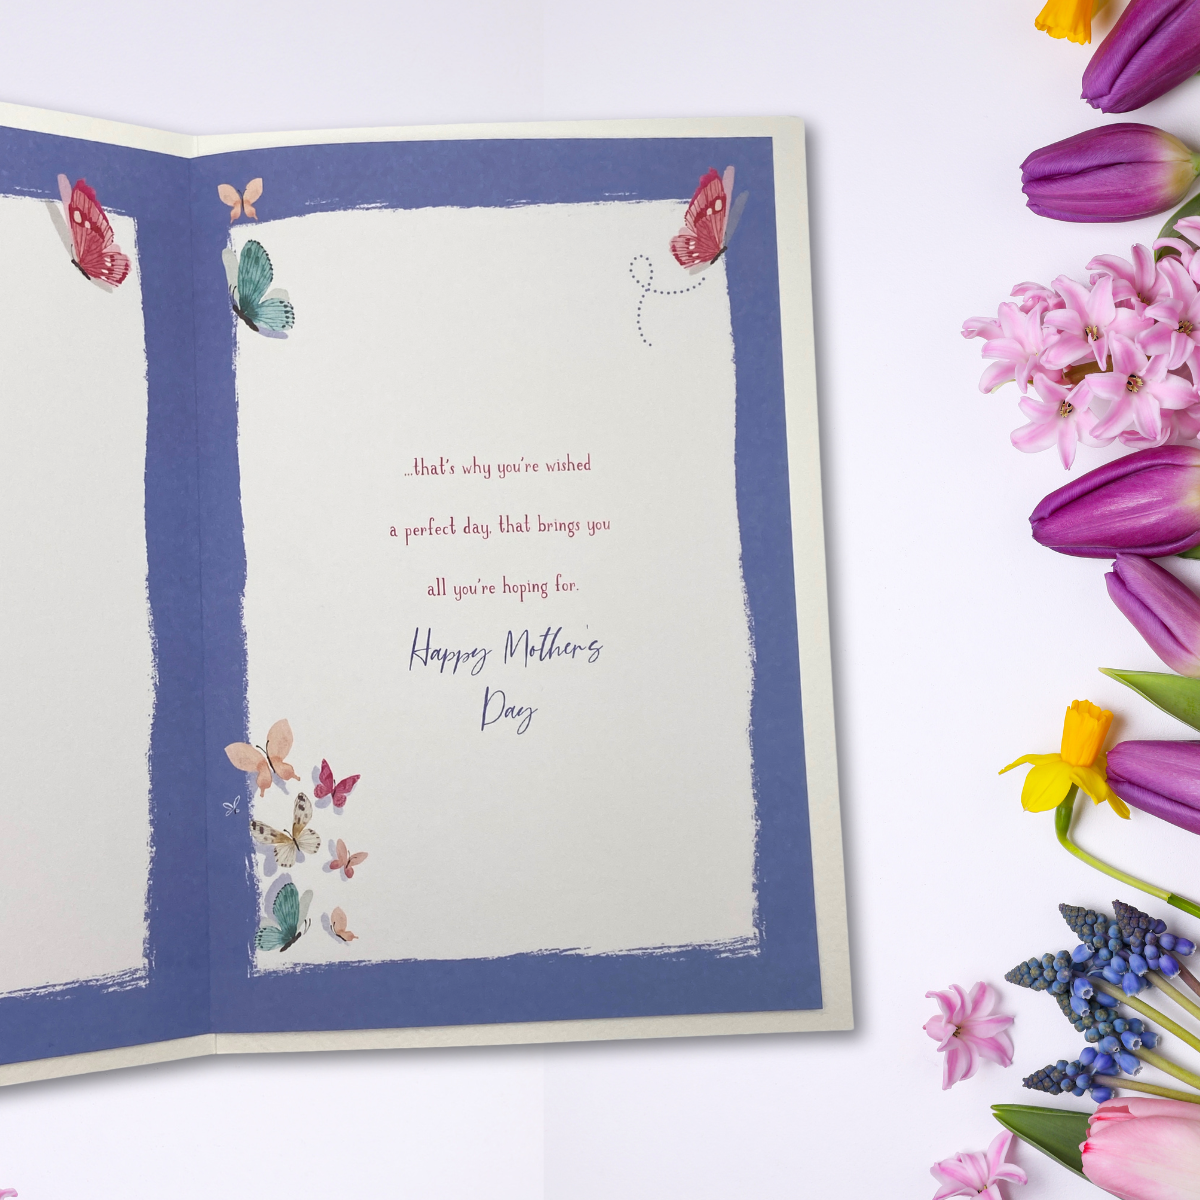 ...that's why you're wished
a perfect day, that brings you
all you're hoping for.
Happy Mother's
Day